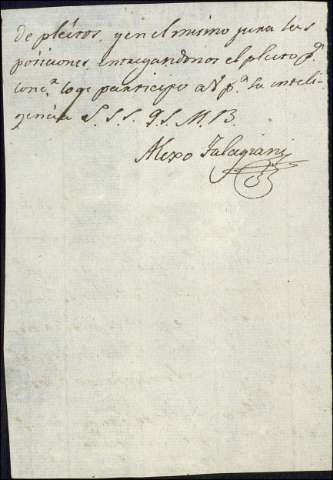 de pleitos, y en el mismo jura las
posiciones, entregandonos el pleito pª
lo qe participo a V. pª su inteli-
gencia S. S. S. Q. S. M. B.
Alexo